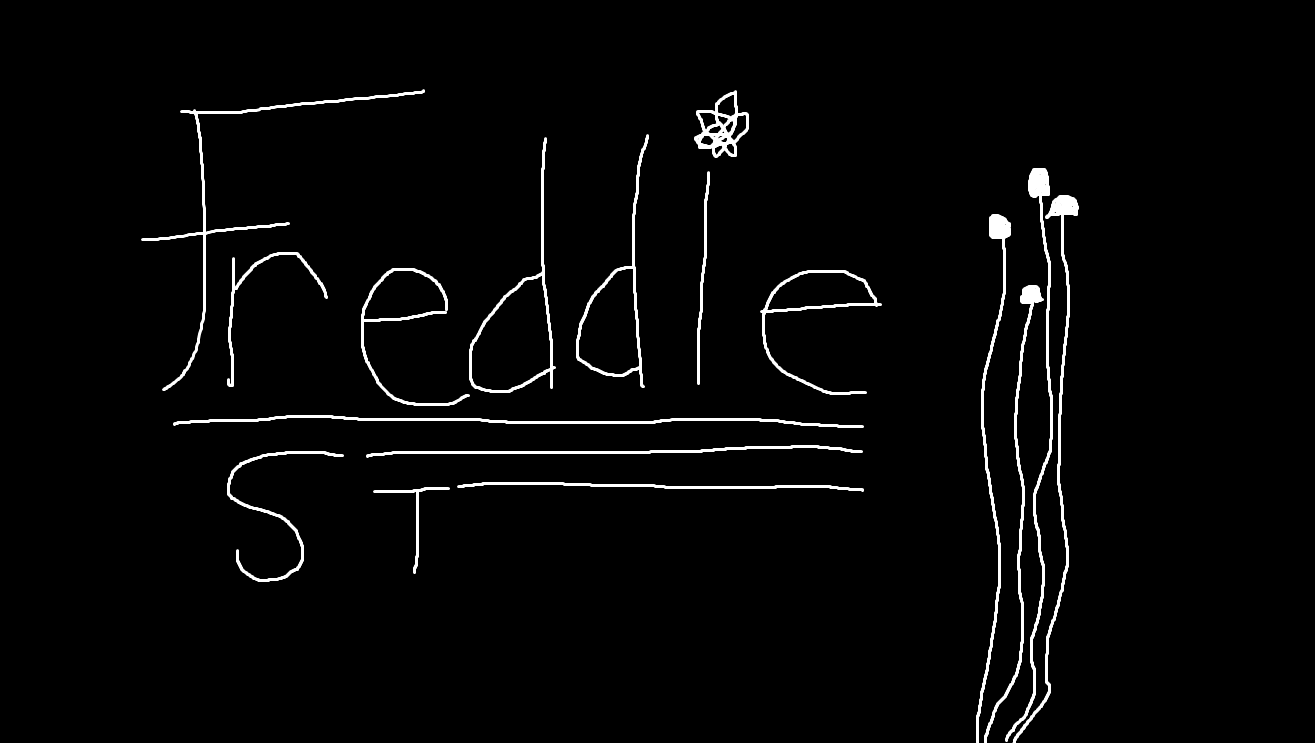 Freddie
ST